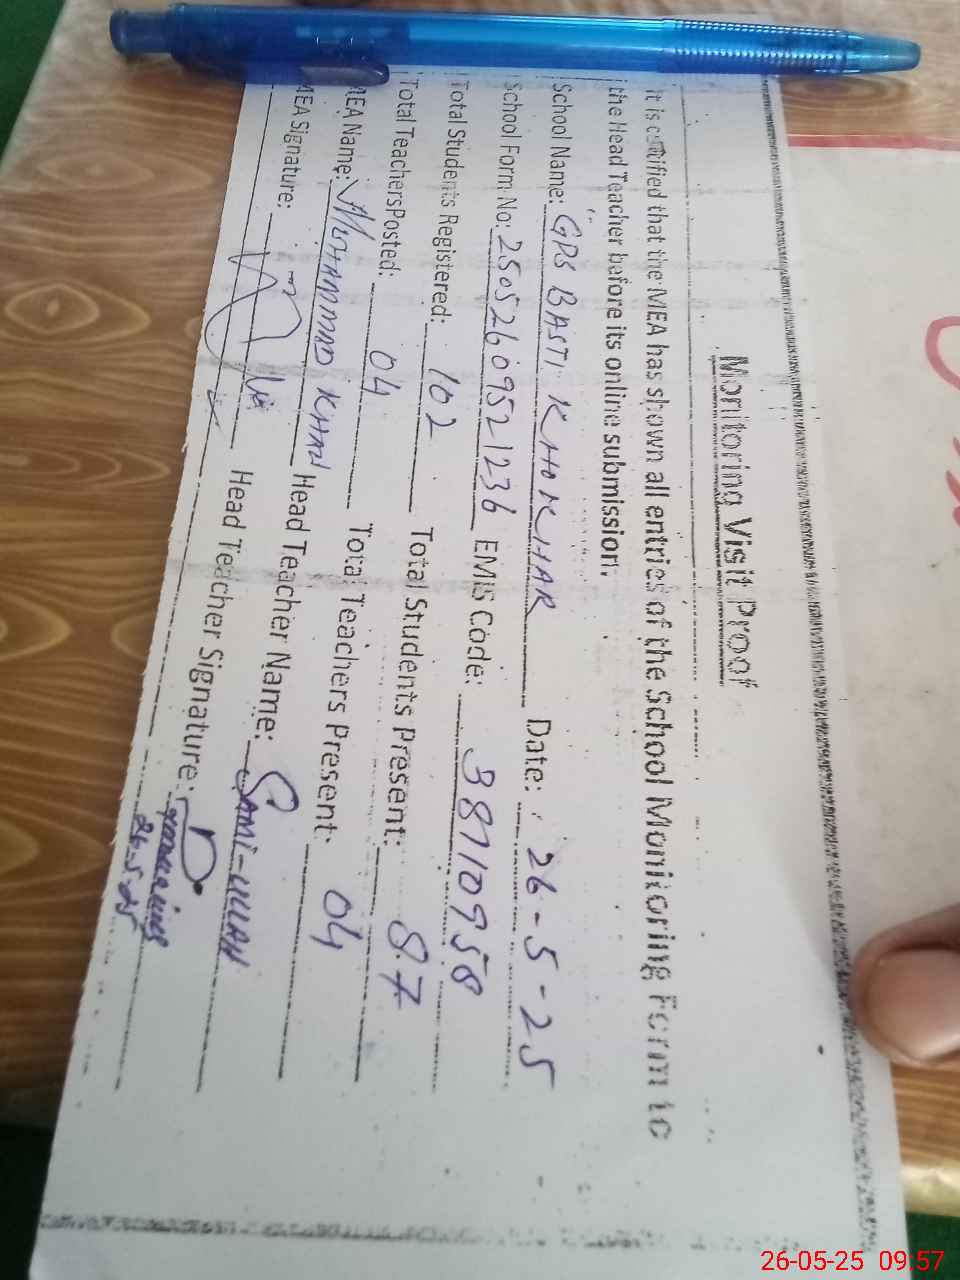 Monitoring Visit Proof
it is certified that the MEA has shown all entries of the School Monitoring Form to
the Head Teacher before its online submission.
School Name: GPS BASTI KHOKHAR Date: 26-5-25
School Form No: 25052609521236 EMIS Code: 38710958
Total Students Registered: 102 Total Students Present: 87
Total Teachers Posted: 04 Total Teachers Present: 04
MEA Name: MUHAMMAD KHAN Head Teacher Name: SAMI-ULLAH
MEA Signature: Head Teacher Signature:
26-5-25
26-05-25 09:57